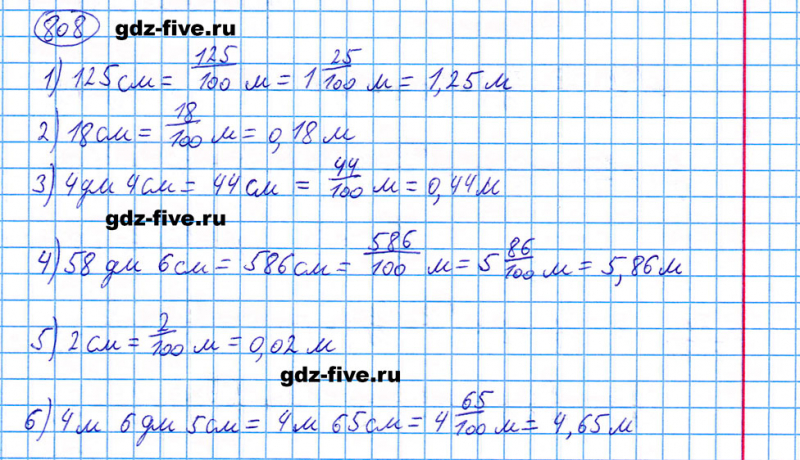 808 gdz-five.ru
1) 125 см = 125/100 м = 1 25/100 м = 1,25 м
2) 18 см = 18/100 м = 0,18 м
3) 4 дм 4 см = 44 см = 44/100 м = 0,44 м
gdz-five.ru
4) 58 дм 6 см = 586 см = 586/100 м = 5 86/100 м = 5,86 м
5) 2 см = 2/100 м = 0,02 м
gdz-five.ru
6) 4 м 6 дм 5 см = 4 м 65 см = 4 65/100 м = 4,65 м